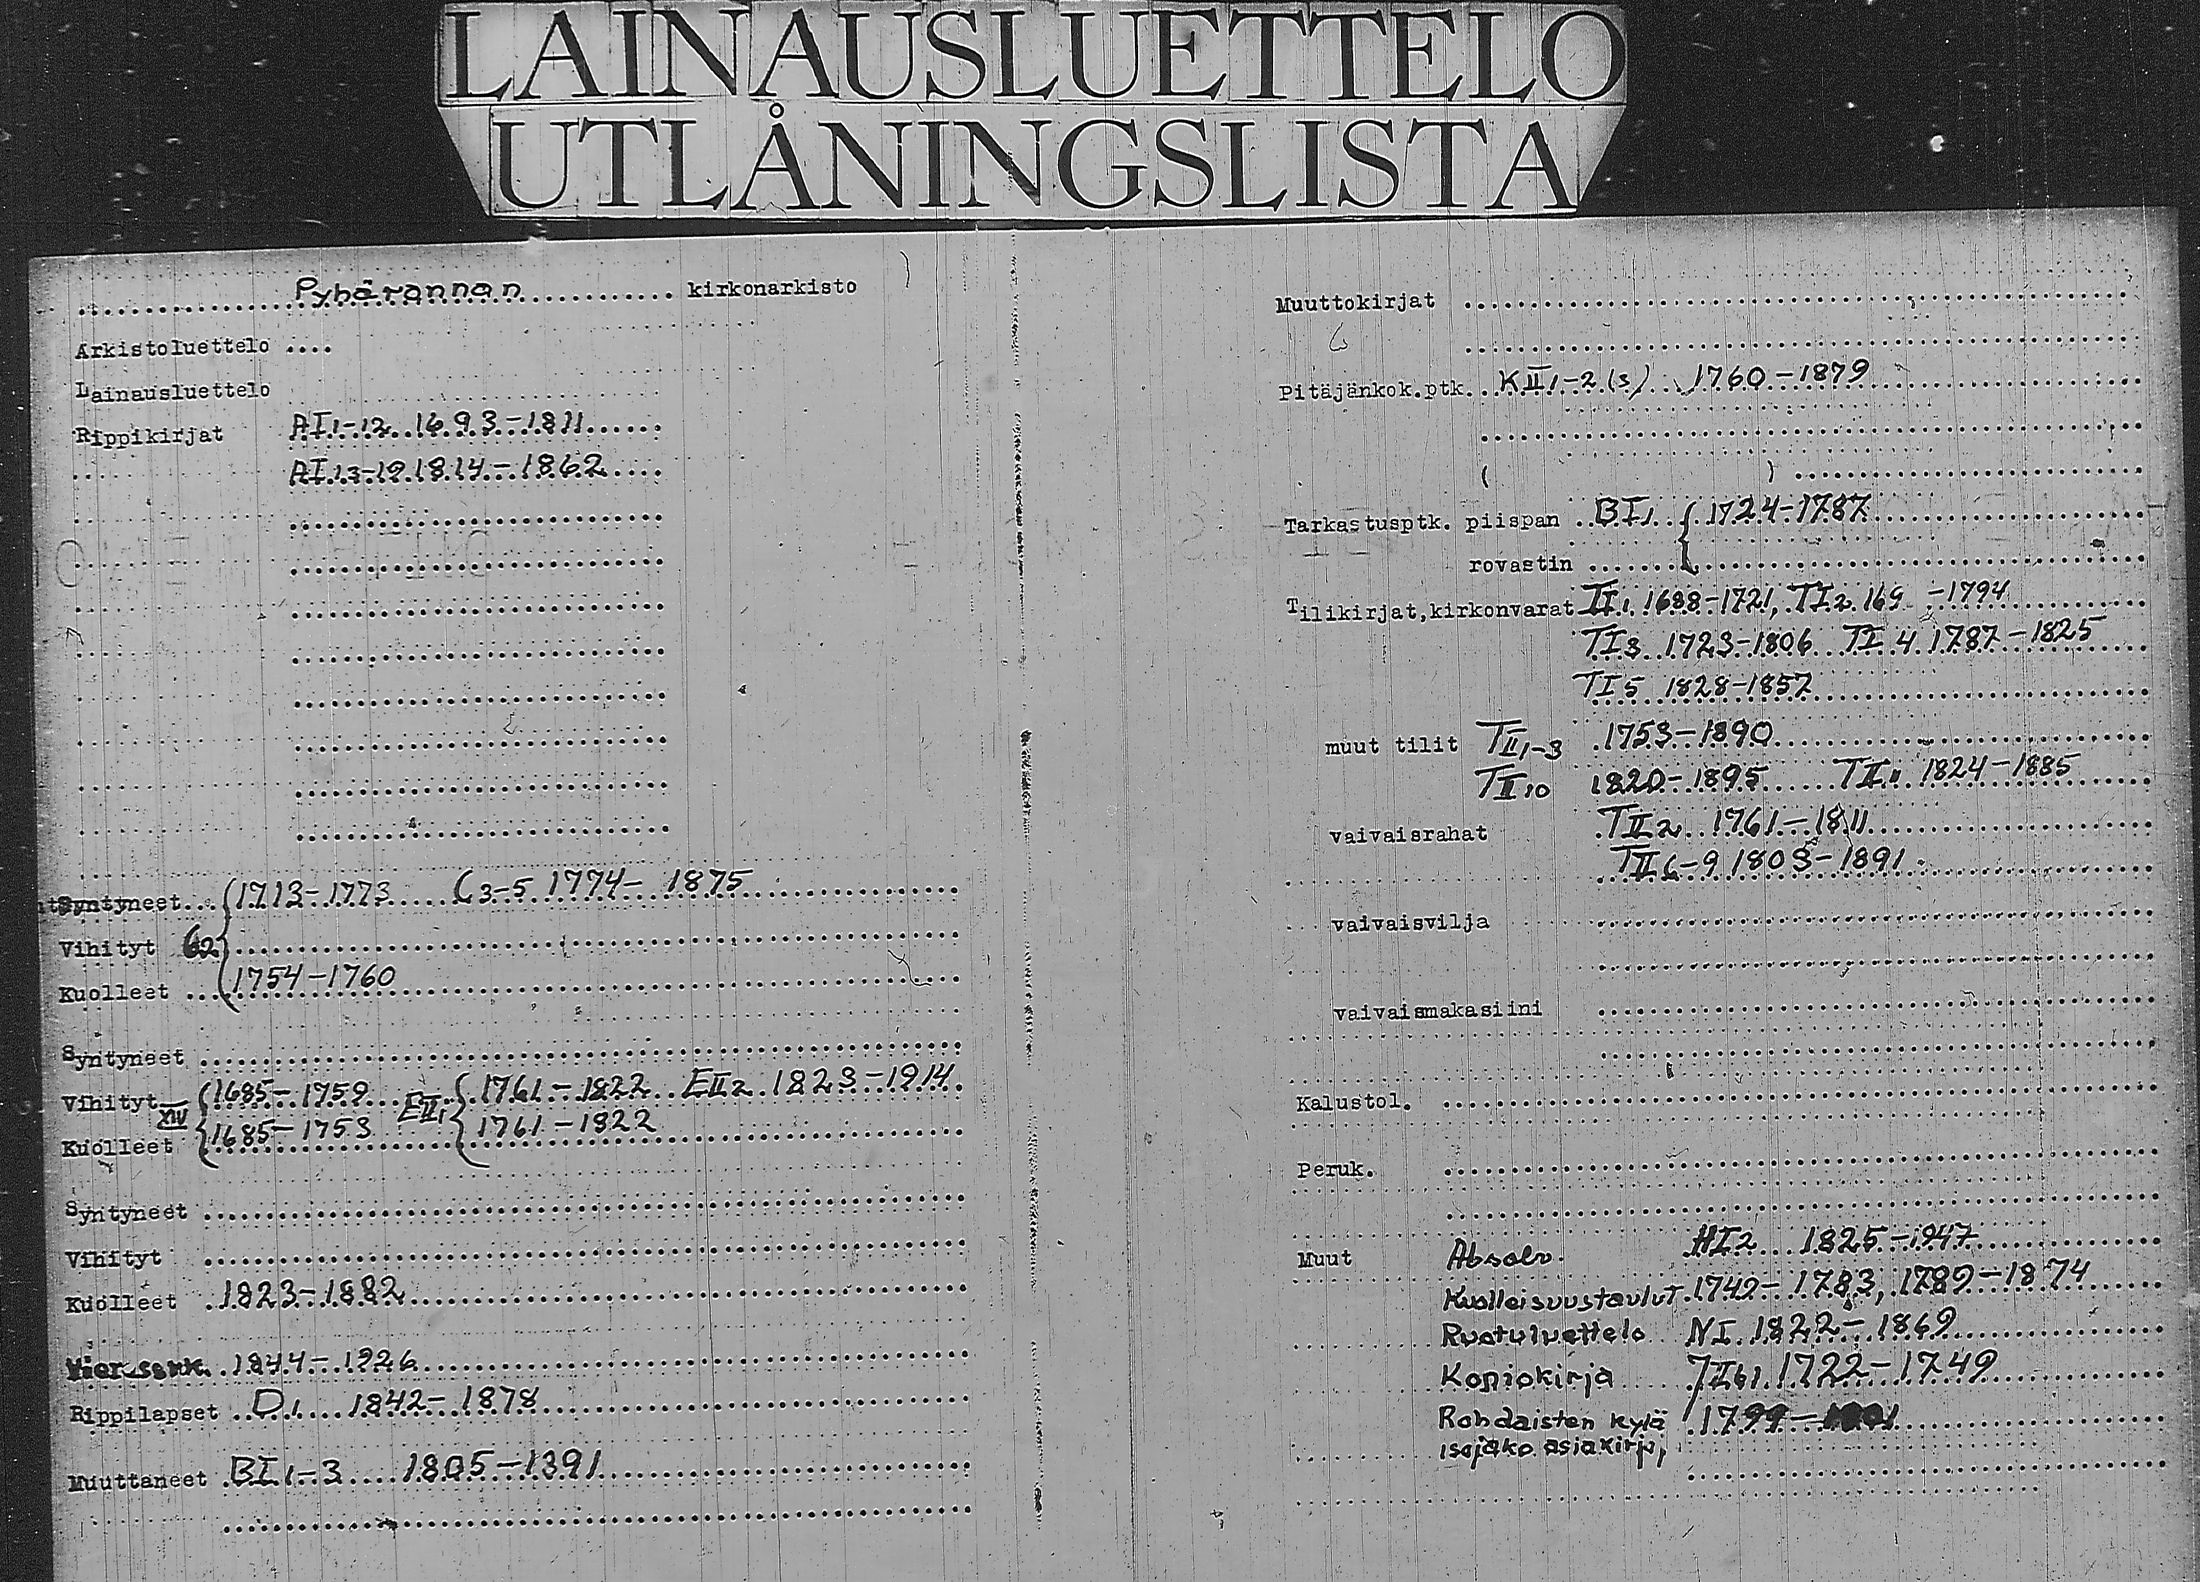 LAINAUSLUETTELO
UTLÅNINGSLISTA
Pyhärannan kirkonarkisto
Arkistoluettelo
Lainausluettelo
Rippikirjat AI1-12 1693-1811
AI13-19 1814-1862
Syntyneet 1713-1773 C3-5 1774-1875
Vihityt C2
Kuolleet 1754-1760
Syntyneet
Vihityt 1685-1759 EII1 1761-1822 EII2 1823-1914
XIV
Kuolleet 1685-1753 1761-1822
Syntyneet
Vihityt
Kuolleet 1823-1882
1844-1926
Rippilapset D1 1842-1878
Muuttaneet BI1-3 1805-1891
Muuttokirjat
Pitäjänkok.ptk. KII1-2(3) 1760-1879
Tarkastusptk. piispan BI1 1724-1787
rovastin
Tilikirjat,kirkonvarat TI1 1688-1721, TI2 169 -1794
TI3 1723-1806 TI4 1787-1825
TI5 1828-1857
muut tilit TII1-3 1753-1890
TII10 1820-1895 TII11 1824-1885
vaivaisrahat TII2 1761-1811
TII6-9 1803-1891
vaivaisvilja
vaivaismakasiini
Kalustol.
Peruk.
Muut Absolv. HI2 1825-1947
Kuolleisuustaulut 1742-1783, 1789-1874
Ruotuluettelo NI 1822-1869
Kopiokirja JII61 1722-1749
Rohdaisten kylä 1799-
isojako asiakirj,